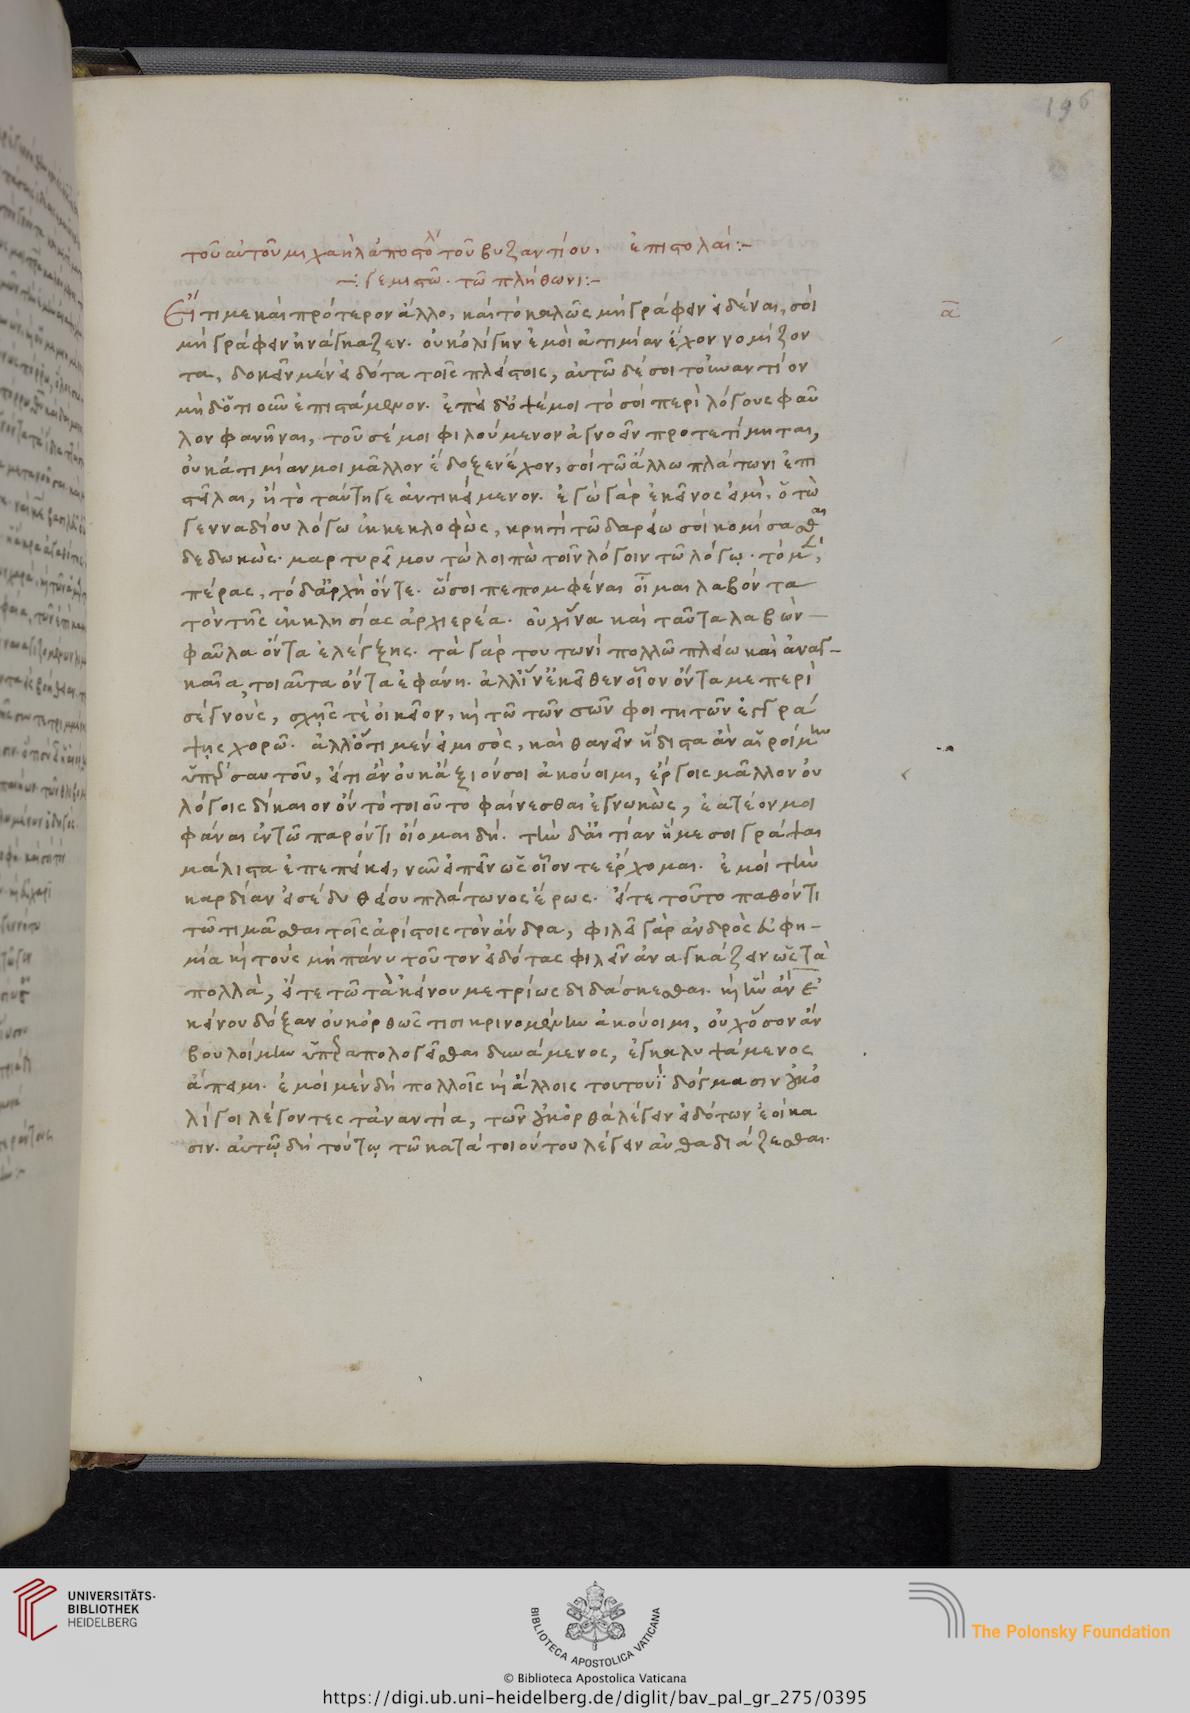 196
τοῦ αὐτοῦ μιχαὴλ ἀποστόλ τοῦ βυζαντίου. ἐπιστολαί:-
-: γεμιστῶ. τῶ πλήθωνι:-
Εἴ τι με καὶ πρότερον ἄλλο, καὶ τὸ καλῶς μὴ γράφειν εἰδέναι, σοὶ
α
μὴ γράφειν ἠνάγκαζεν. οὐκ ὀλίγην ἐμοὶ ἀτιμίαν ἔχον νομίζον
τα, δοκεῖν μὲν εἰδότα τοῖς πλείστοις, αὐτῶ δέ σοι τοὐναντίον
μὴ δ' ὅτι οῦν ἐπιστάμενον. ἐπεὶ δ' ὄψέ μοι τὸ σοὶ περὶ λόγους φαῦ
λον φανῆναι, τοῦ σέ μοι φιλούμενον ἀγνοεῖν προτετίμηται,
οὐκ ἀτιμίαν μοι μᾶλλον ἔδοξεν ἔχον, σοὶ τῶ ἄλλω πλάτωνι ἐπι
στεῖλαι, ἢ τὸ ταύτη γε ἀντικείμενον. ἐγὼ γὰρ ἐκεῖνος εἰμὶ, ὃ τὼ
γενναδίου λόγω ἐκκεκλοφὼς, κρητὶ τῶ δαρείω σοὶ κομίσασθαι
δεδωκὼς. μαρτυρεῖ μου τὼ λοιπὼ τοῖν λόγοιν τῶ λόγῳ. τὸ μὲν,
πέρας, τὸ δ' ἀρχὴ ὄντε. ὥσοι πεπομφέναι οἶμαι λαβόντα
τὸν τῆς ἐκκλησίας ἀρχιερέα. οὐχ ἵνα καὶ ταῦτα λαβὼν
φαῦλα ὄντα ἐλέγξης. τὰ γὰρ τουτωνὶ πολλῶ πλείω καὶ ἀναγ-
καῖα, τοιαῦτα ὄντα ἐφάνη. ἀλλ' ἵν' ἐκεῖθεν οἷον ὄντα με περὶ
σὲ γνοὺς, σχῇς τὲ οἰκεῖον, καὶ τῶ τῶν σῶν φοιτητῶν ἐγγρά
ψῃς χορῶ. ἀλλ' ὅτι μὲν εἰμὶ σὸς, καὶ θανεῖν ἥδιστα ἂν αἱροίμην
ὑπὲρ σαυτοῦ, ἔτι ἂν οὐκ ἄξιόν σοι ἀκούοιμι, ἔργοις μᾶλλον οὐ
λόγοις δίκαιον ὂν τὸ τοιοῦτο φαίνεσθαι ἐγνωκὼς, ἐατέον μοι
φάναι ἐν τῶ παρόντι οἴομαι δή. τὴν δ' αἰτίαν ἥ με σοι γράψαι
μάλιστα ἐπεπείκει, νῦν εἰπεῖν ὡς οἷον τε ἔρχομαι. ἐμοὶ τὴν
καρδίαν εἰσέδυ θείου πλάτωνος ἔρως. εἴτε τοῦτο παθόντι
τῶ τιμᾶσθαι τοῖς ἀρίστοις τὸν ἄνδρα, φιλεῖ γὰρ ἀνδρὸς εὐφη-
μία καὶ τοὺς μὴ πάνυ τοῦτον εἰδότας φιλεῖν ἀναγκάζειν ὡς τὰ
πολλὰ, εἴτε τῶ τἀκείνου μετρίως διδάσκεσθαι. καὶ ἣν ἂν ἐ
κείνου δόξαν οὐκ ὀρθῶς τισι κρινομένην ἀκούοιμι, οὐχ ὅσον ἂν
βουλοίμην ὑπεραπολογεῖσθαι δυνάμενος, ἐγκαλυψάμενος
ἄπειμι. ἐμοὶ μὲν δὴ πολλοῖς καὶ ἄλλοις τουτουῒ δόγμασιν οὐκ ὀ
λίγοι λέγοντες τἀναντία, τῶν οὐκ ὀρθὰ λέγειν εἰδότων ἐοίκα
σιν. αὐτῷ δὴ τούτῳ τῶ κατὰ τοιούτου λέγειν αὐθαδιάζεσθαι.
UNIVERSITÄTS-
BIBLIOTHEK
HEIDELBERG
BIBLIOTECA APOSTOLICA VATICANA
The Polonsky Foundation
© Biblioteca Apostolica Vaticana
https://digi.ub.uni-heidelberg.de/diglit/bav_pal_gr_275/0395